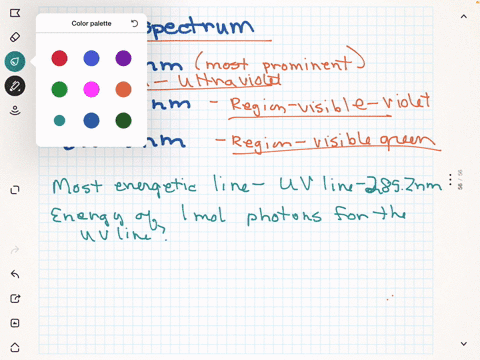 Color palette
spectrum
nm (most prominent)
- Ultraviolet
nm - Region-visible-violet
nm - Region-visible green
Most energetic line- UV line-285.2nm
Energy of 1mol photons for the
UV line?